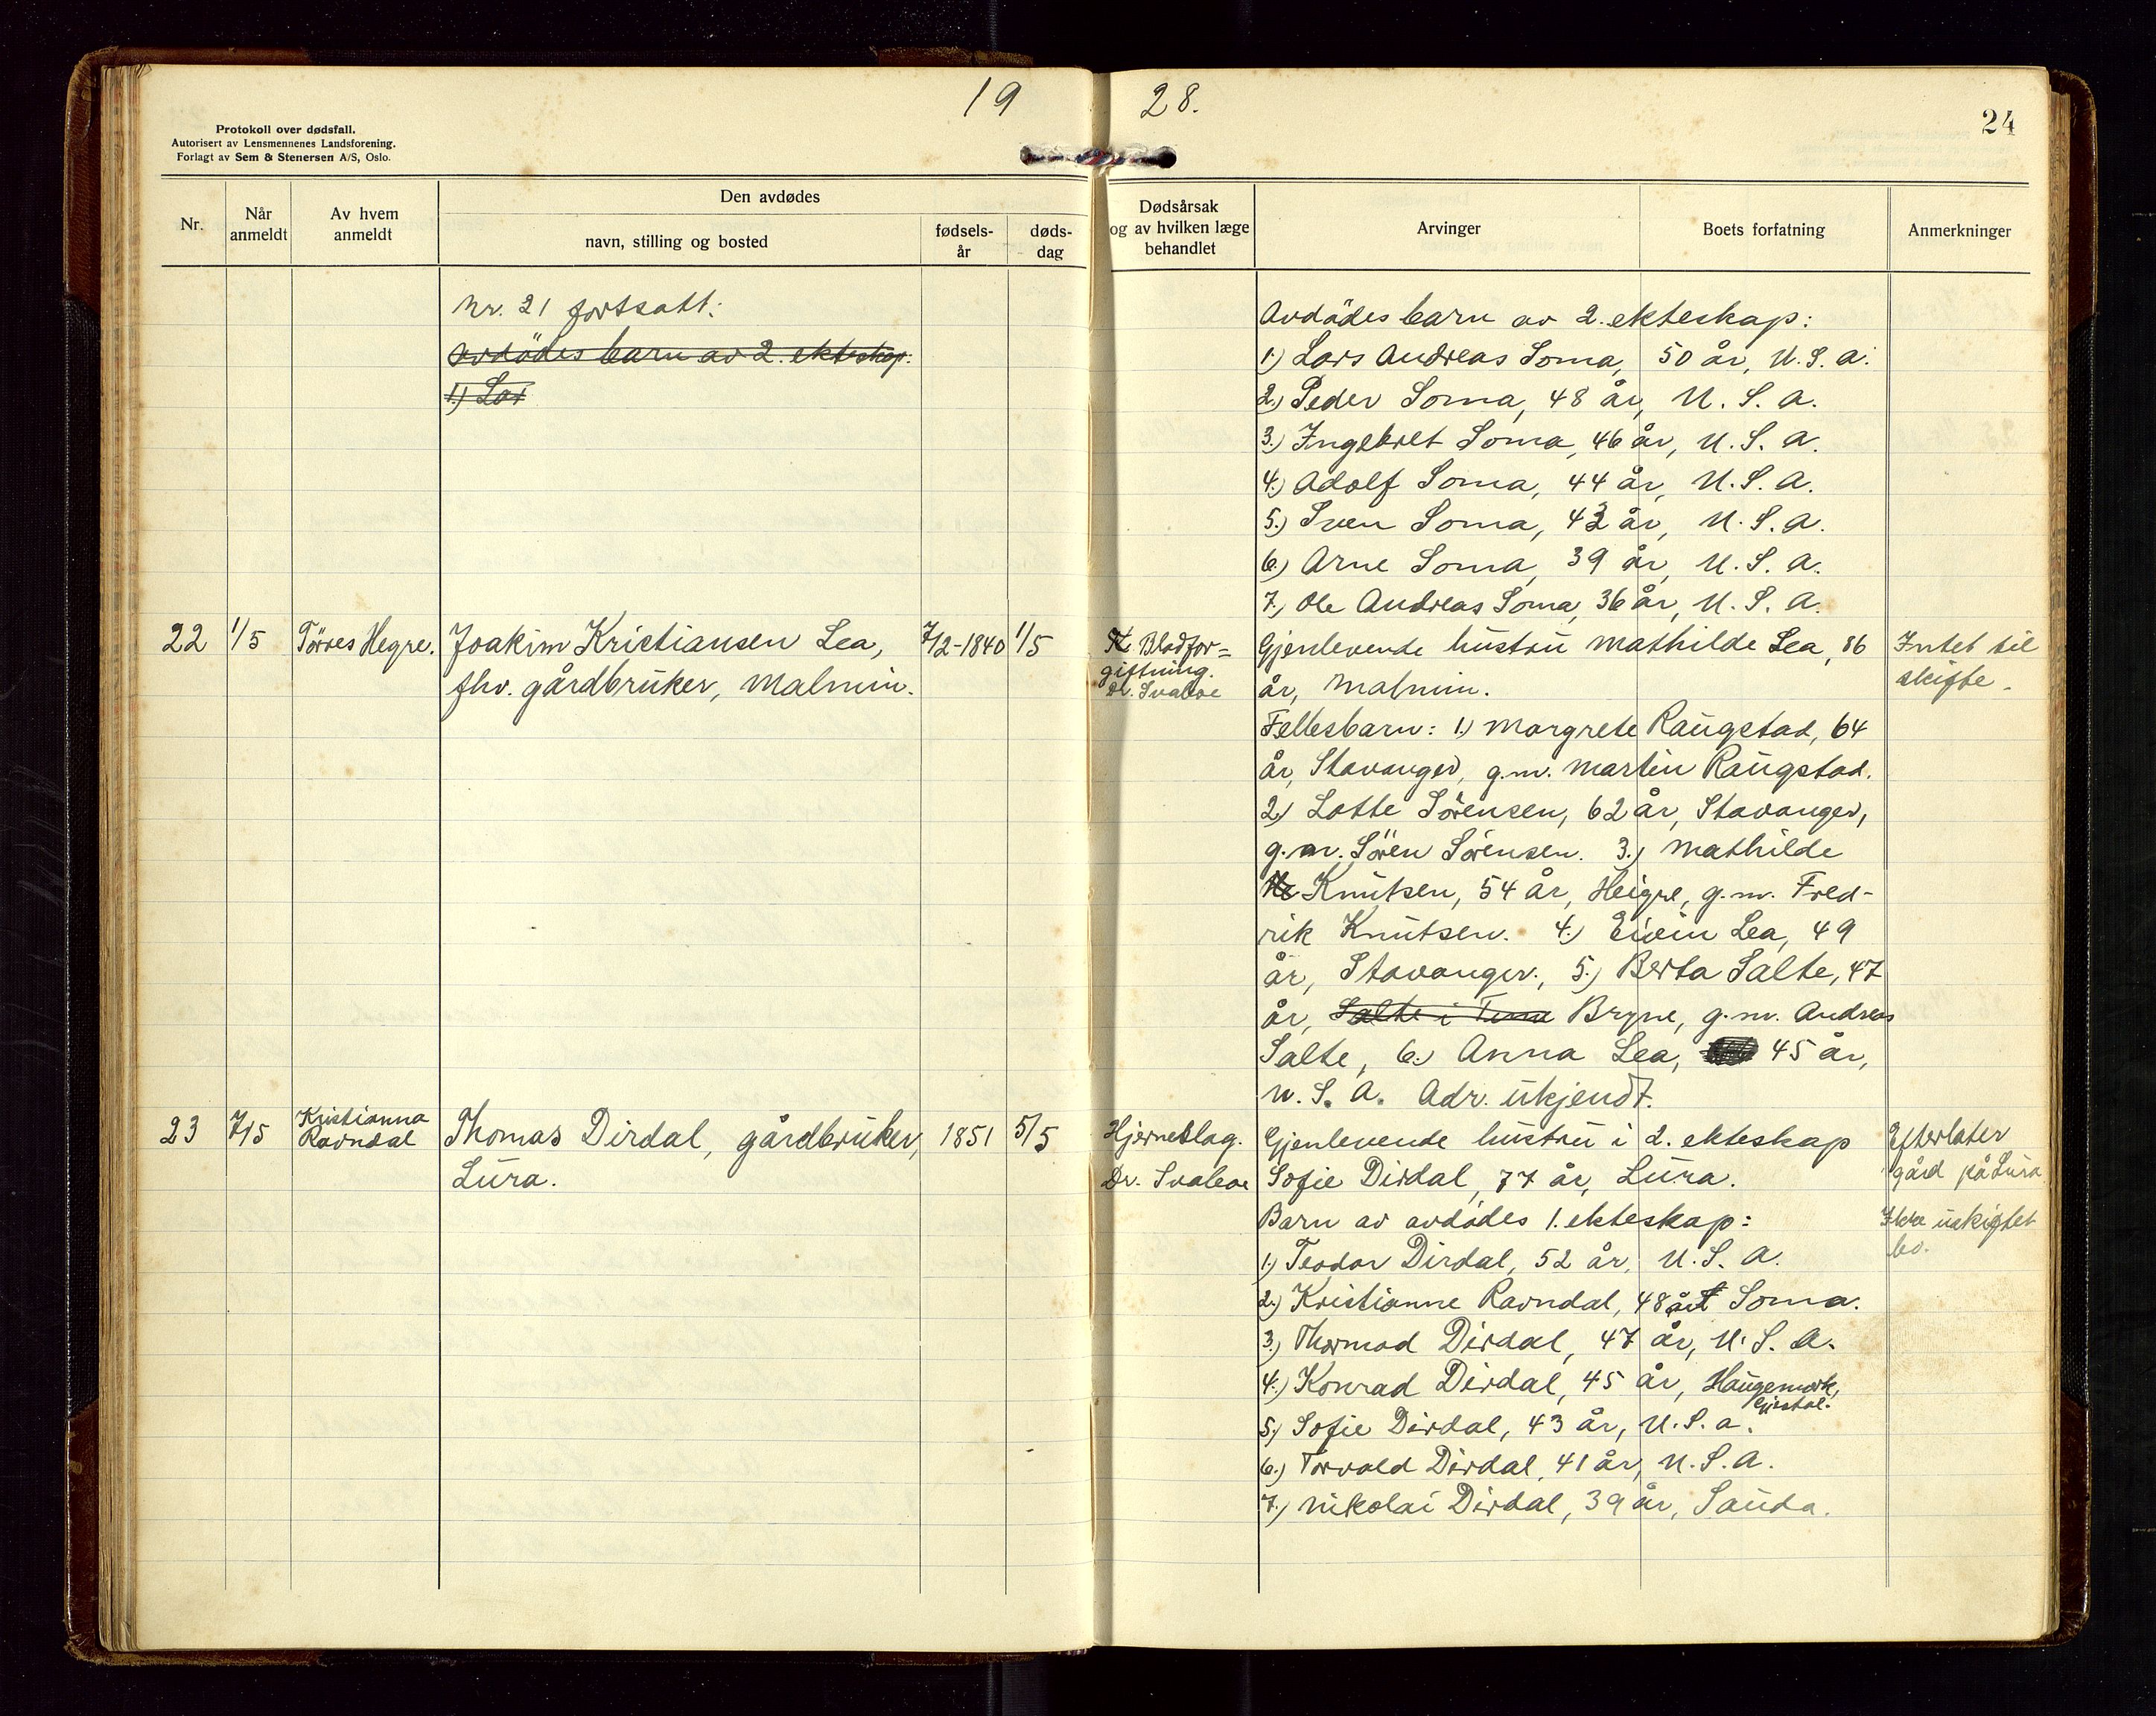 19 28.
24
Protokoll over dødsfall.
Autorisert av Lensmennenes Landsforening.
Forlagt av Sem & Stenersen A/S, Oslo.
Nr.
Når anmeldt
Av hvem anmeldt
Den avdødes
navn, stilling og bosted
fødsels-
år
døds-
dag
Dødsårsak
og av hvilken læge
behandlet
Arvinger
Boets forfatning
Anmerkninger
Nr. 21 fortsatt:
Avdödes barn av 2. ekteskap:
1.) Lar
Avdödes barn av 2. ekteskap:
1.) Lars Andreas Soma, 50 år, U.S.A.
2.) Peder Soma, 48 år, U.S.A.
3.) Ingebret Soma, 46 år, U.S.A.
4.) Adolf Soma, 44 år, U.S.A.
5.) Sven Soma, 43 år, U.S.A.
6.) Arne Soma, 39 år, U.S.A.
7.) Ole Andreas Soma, 36 år, U.S.A.
22 1/5 Törres Hegre. Joakim Kristiansen Lea, 7/2-1840 1/5
fhv. gårdbruker, Malmin.
Blodfor=
giftning.
Dr. Svaboe
Gjenlevende hustru Mathilde Lea, 86
år, Malmin.
Fellesbarn: 1.) Margrete Raugstad, 64
år, Stavanger, g.m. Martin Raugstad.
2.) Lotte Sörensen, 62 år, Stavanger,
g.m. Sören Sörensen. 3.) Mathilde
Knutsen, 54 år, Heigre, g.m. Fred-
rik Knutsen. 4.) Eivin Lea, 49
år, Stavanger., 5.) Berta Salte, 47
år, Salte i Time Bryne, g.m. Andreas
Salte, 6.) Anna Lea, 45 år,
U.S.A. Adr. ukjendt.
Intet til
skifte.
23 7/5 Kristianna
Ravndal
Thomas Dirdal, gårdbruker, 1851 5/5
Lura.
Hjerneslag.
Dr. Svaboe
Gjenlevende hustru i 2. ekteskap
Sofie Dirdal, 77 år, Lura.
Barn av avdödes 1. ekteskap:
1.) Teodor Dirdal, 52 år, U.S.A.
2.) Kristianne Ravndal, 48 år Soma.
3.) Thormod Dirdal, 47 år, U.S.A.
4.) Konrad Dirdal, 45 år, Haugemork,
Gjestal.
5.) Sofie Dirdal, 43 år, U.S.A.
6.) Torvald Dirdal, 41 år, U.S.A.
7.) Nikolai Dirdal, 39 år, Sauda.
Efterlater
gård på Lura
Ikke uskiftet
bo.